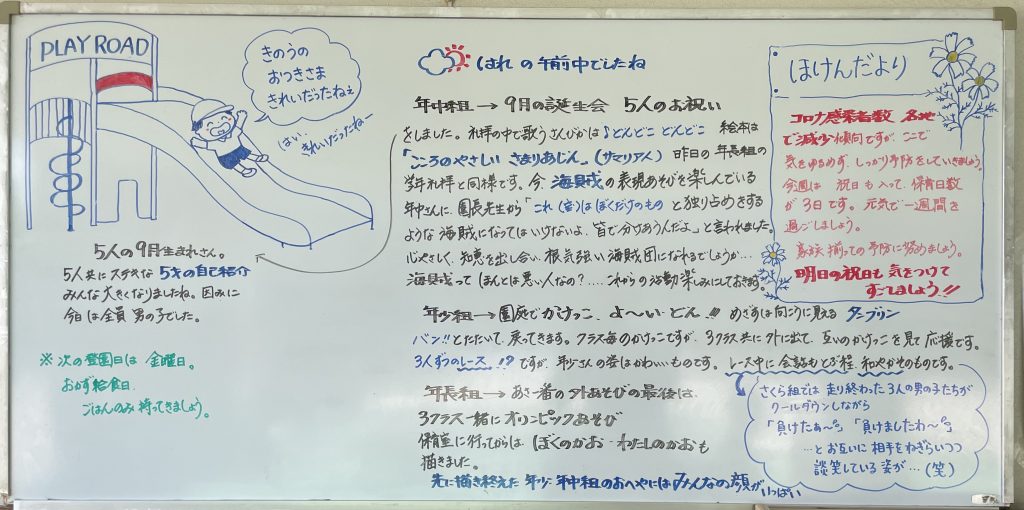 PLAY ROAD
きのうの
おつきさま
きれいだったねぇ
はい、
きれいだったねー
5人の9月生まれさん。
5人共にステキな5才の自己紹介
みんな大きくなりましたね。因みに
今日は全員 男の子でした。
※次の登園日は 金曜日。
おかず給食日.
ごはんのみ 持ってきましょう。
はれ の 午前中でしたね
年中組→9月の誕生会 5人のお祝い
をしました。礼拝の中で歌うさんびかは♪どんどこ どんどこ 絵本は
「こころのやさしい さまりあじん」(サマリア人) 昨日の 年長組の
学年礼拝と同様です。今、海賊の表現あそびを楽しんでいる
年中さんに、園長先生から「これ(宝)はぼくだけのもの と独り占めをする
ような海賊になってはいけないよ、皆で分けあうんだよ」と言われました。
心やさしく、知恵を出し合い、根気強い海賊団になれるでしょうか…
海賊って ほんとは悪い人なの?‥‥これからの活動楽しみにしておきます。
年少組→園庭でかけっこ よ〜い・どん!! めざすは向こうに見える タンブリン
バン!!とたたいて、戻ってきます。クラス毎のかけっこですが、3クラス共に外に出て、互いのかけっこを見て応援です。
3人ずつのレース!?ですが、年少さんの姿はかわいいものです。レース中に会話もとぶ程、和やかそのものです。
さくら組では 走り終わった 3人の男の子たちが
クールダウンしながら
「負けたぁ〜」「負けましたわ〜」
…とお互いに 相手をねぎらいつつ
談笑している 姿が…(笑)
年長組→あさ一番の外あそびの最後は、
3クラス一緒に オリンピックあそび
保育室に行ってからは ぼくのかお・わたしのかおも
描きました。
先に描き終えた 年少・年中組のおへやには みんなの顔がいっぱい
ほけんだより
コロナ感染者数 各地
で減少傾向ですが、ここで
気をゆるめず、しっかり予防をしていきましょう。
今週は 祝日も入って、保育日数
が3日です。元気で一週間を
過ごしましょう。
家族揃っての予防に努めましょう。
明日の祝日も 気をつけて
すごしましょう!!